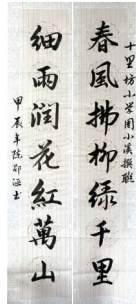 十里坊小学周小溪撰联
春風拂柳绿千里
細雨润花紅萬山
甲辰年陈邵涵书